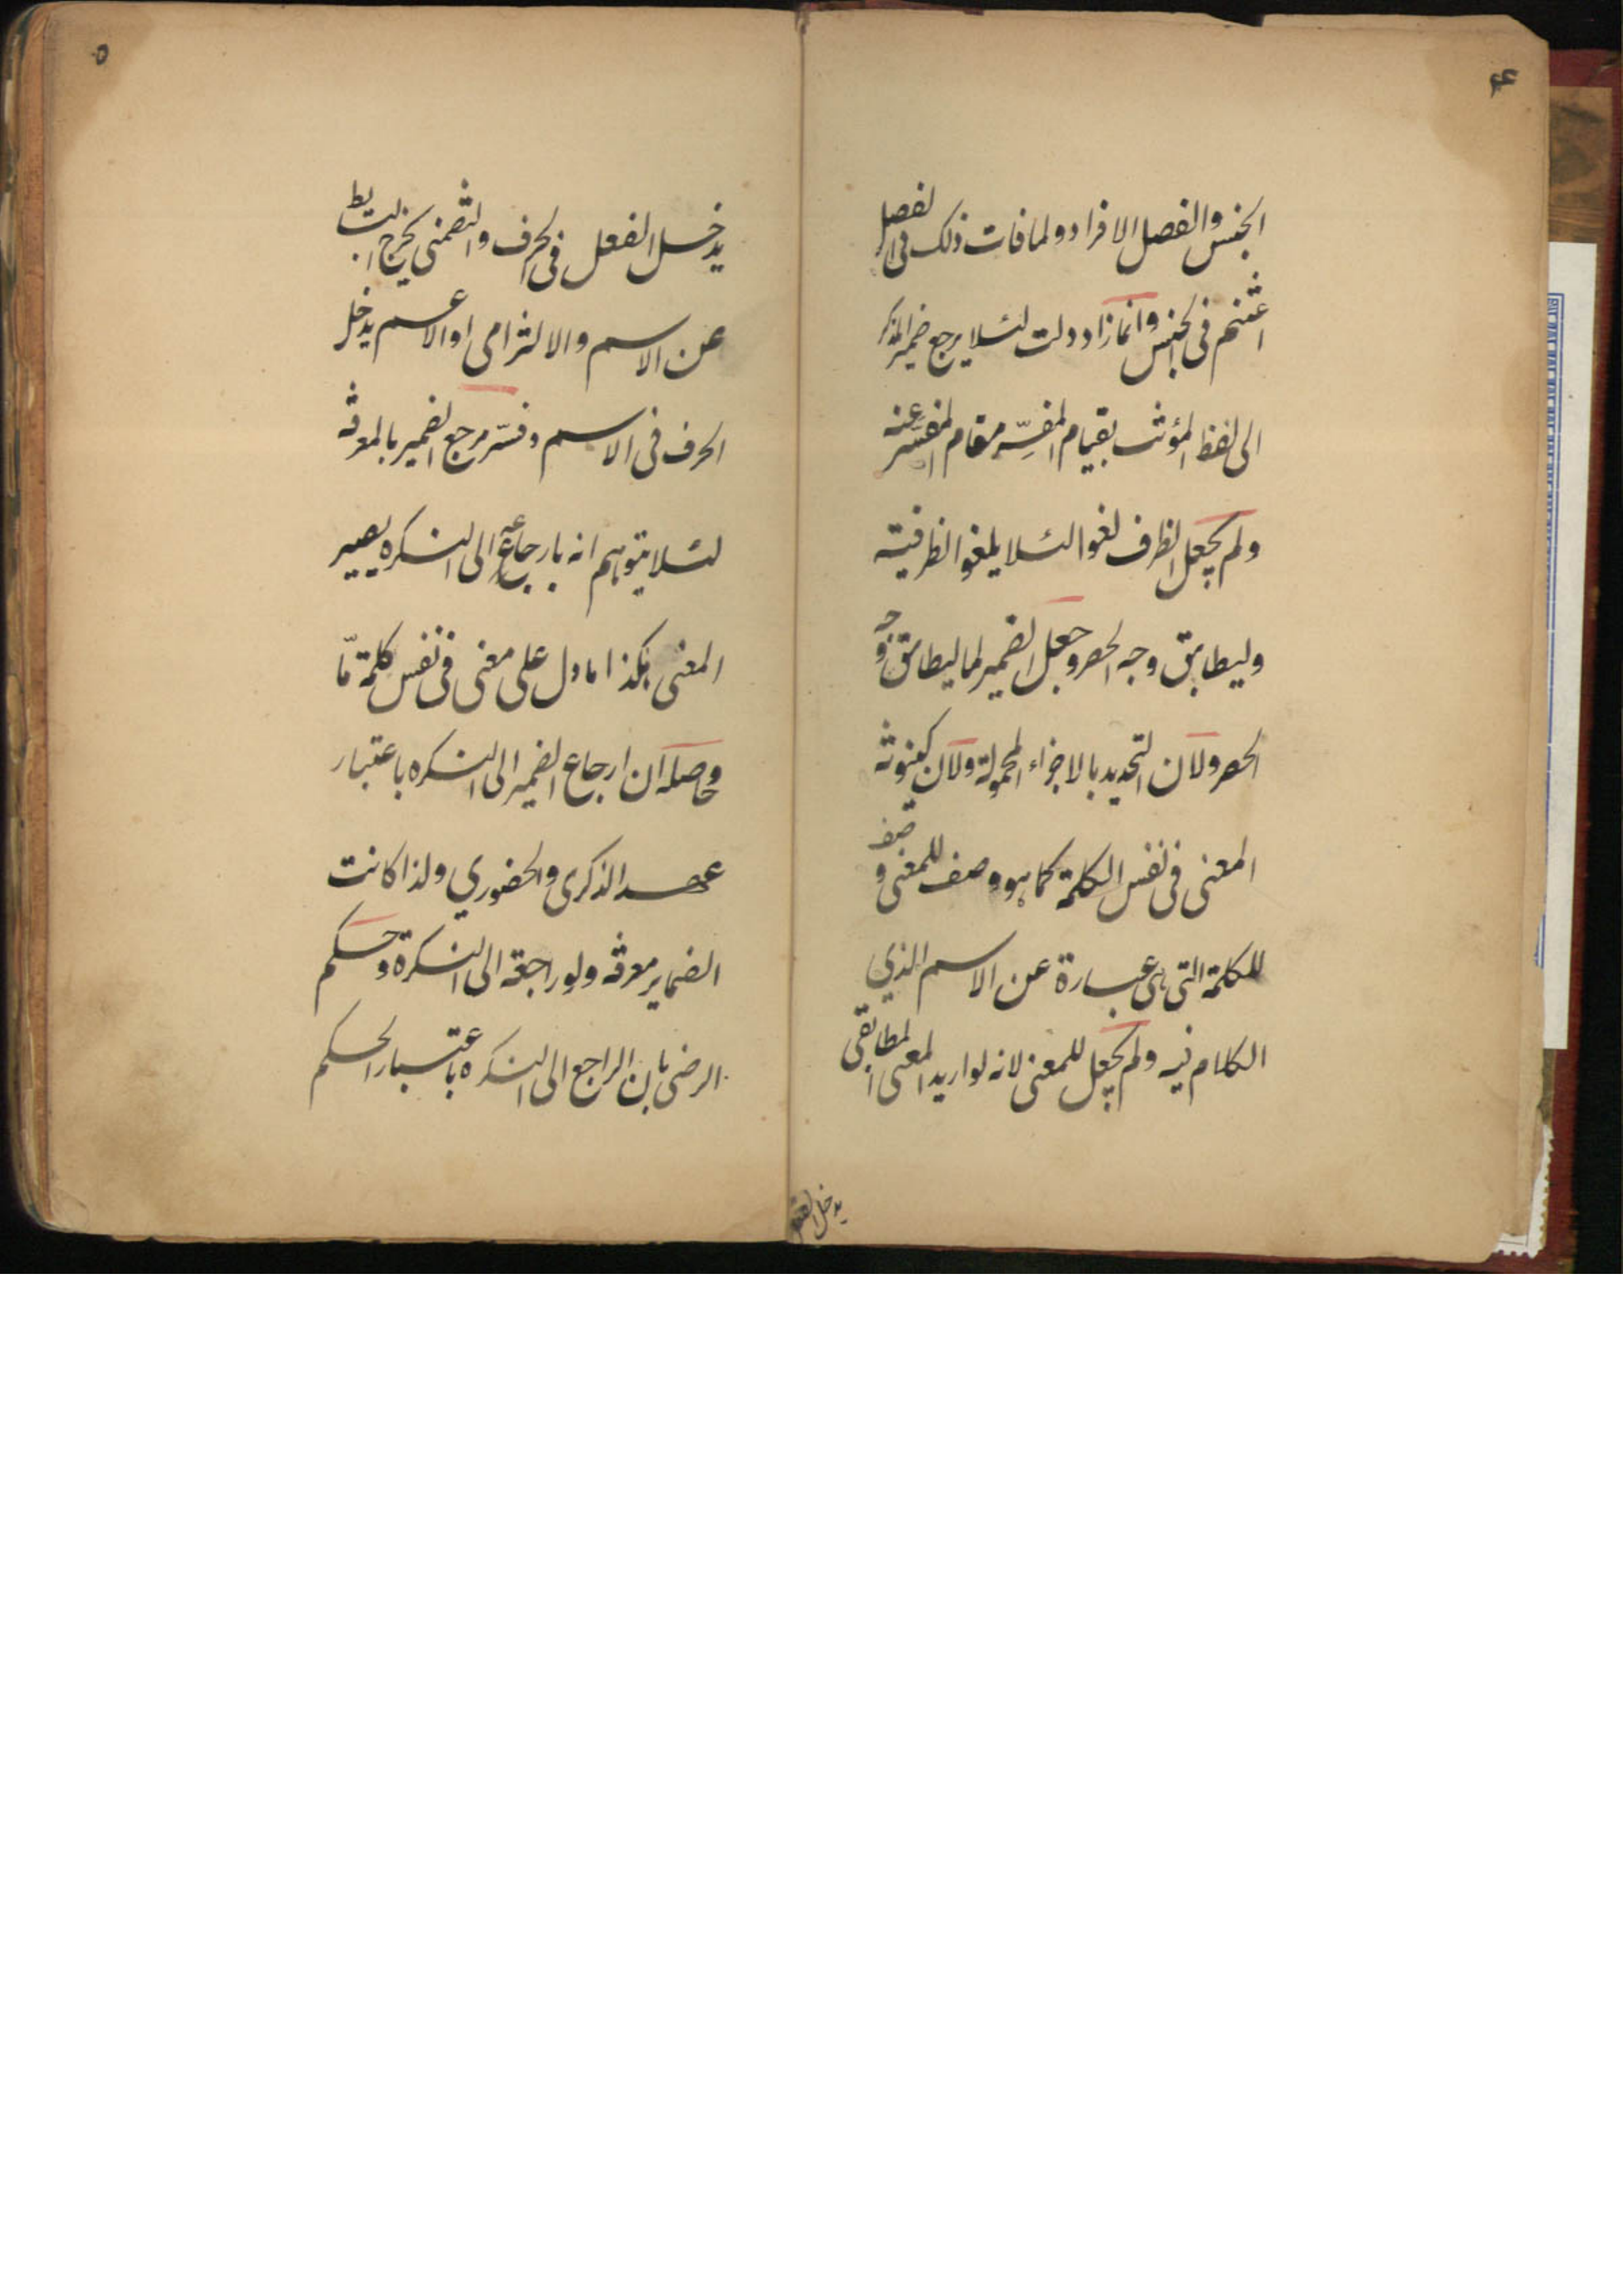 ۴
الجنس والفصل الافراد ولما فات ذلك فى الفصل
اغتنم فى الجنس وانما زاد دلت لئلا يرجع ضمير المذكر
الى لفظ المؤنث بقيام المفسِّر مقام المفسَّر عنه
ولم يجعل الظرف لغوا لئلا يلغو الظرفية
وليطابق وجه الحصر وجعل الضمير لما ليطابق وجه
الحصر ولان التحديد بالاجزاء المحمولة ولان كينونة
المعنى فى نفس الكلمة كما هو وصف للمعنى وصف
للكلمة التى هى عبارة عن الاسم الذي
الكلام فيه ولم يجعل للمعنى لانه لو اريد المعنى المطابقى
يدخل الفعل
۵
يدخل الفعل فى الحرف والتضمنى يخرج البسايط
عن الاسم والالتزامى او الاعم يدخل
الحرف فى الاسم وفسّر مرجع الضمير بالمعرفة
لئلا يتوهم انه بارجاعه الى النكره يصير
المعنى هكذا ما دل على معنى فى نفس كلمة مّا
وحاصله ان ارجاع الضمير الى النكره باعتبار
عهد الذكرى والحضوري ولذا كانت
الضماير معرفة ولو راجعة الى النكرة وحكم
الرضى بان الراجع الى النكره باعتبار الحكم